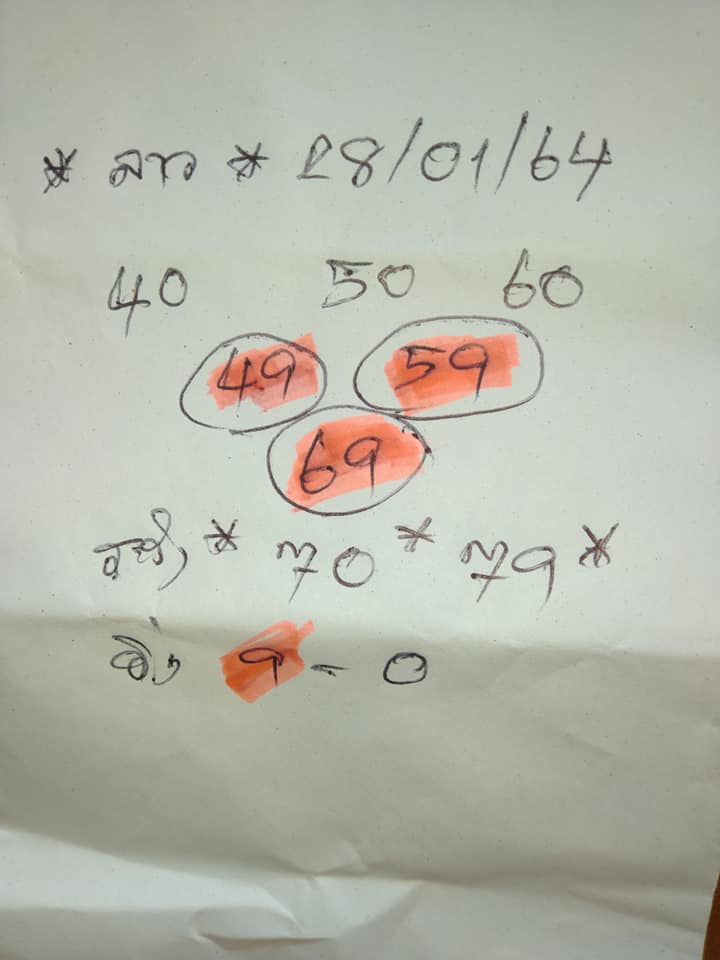 * ลาว * 28/01/64
40 50 60
49 59
69
* 70 * 79 *
วิ่ง 9 - 0